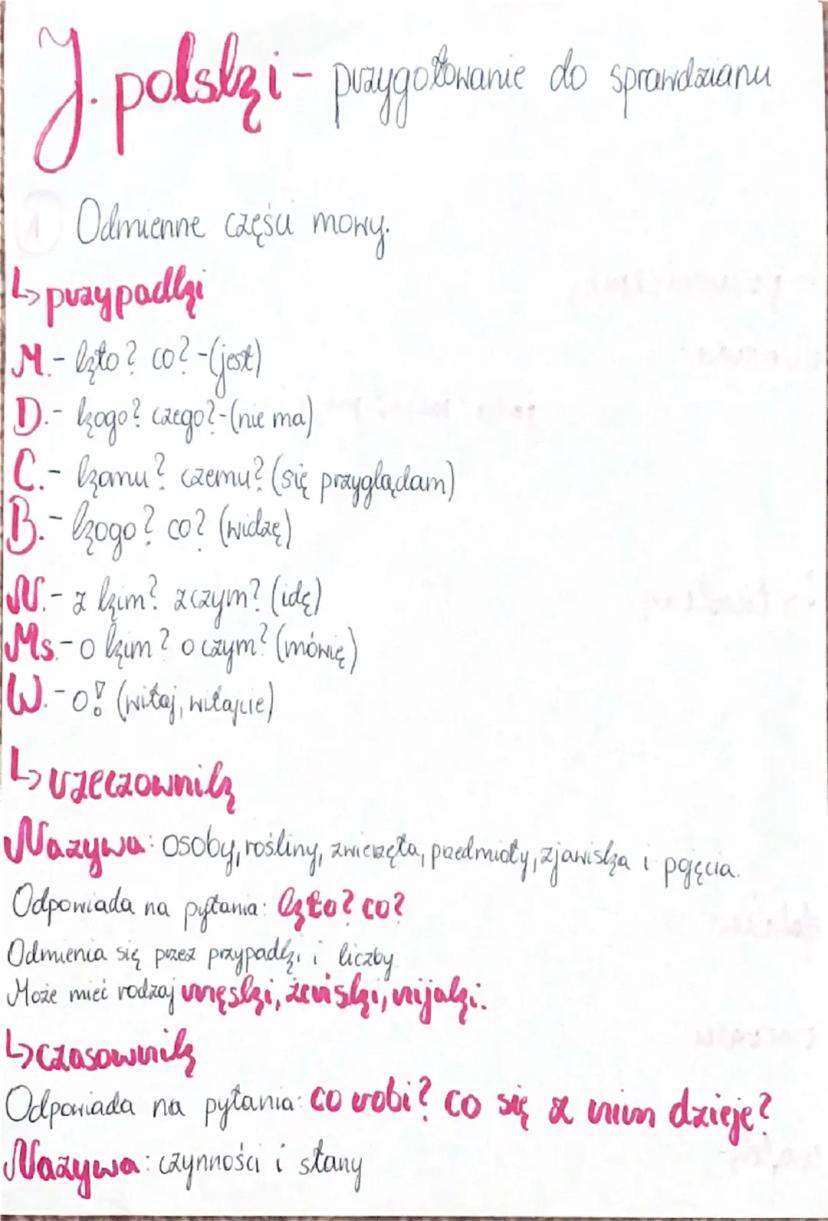 J. polski - przygotowanie do sprawdzianu
Odmienne części mowy.
↳ przypadki
M. - kto? co? - (jest)
D. - kogo? czego? - (nie ma)
C. - komu? czemu? (się przyglądam)
B. - kogo? co? (widzę)
N. - z kim? z czym? (idę)
Ms. - o kim? o czym? (mówię)
W. - o! (witaj, witajcie)
↳ rzeczownik
Nazywa: osoby, rośliny, zwierzęta, przedmioty, zjawiska i pojęcia.
Odpowiada na pytania: kto? co?
Odmienia się przez przypadki i liczby.
Może mieć rodzaj męski, żeński, nijaki.
↳ czasownik
Odpowiada na pytania: co robi? co się z nim dzieje?
Nazywa: czynności i stany